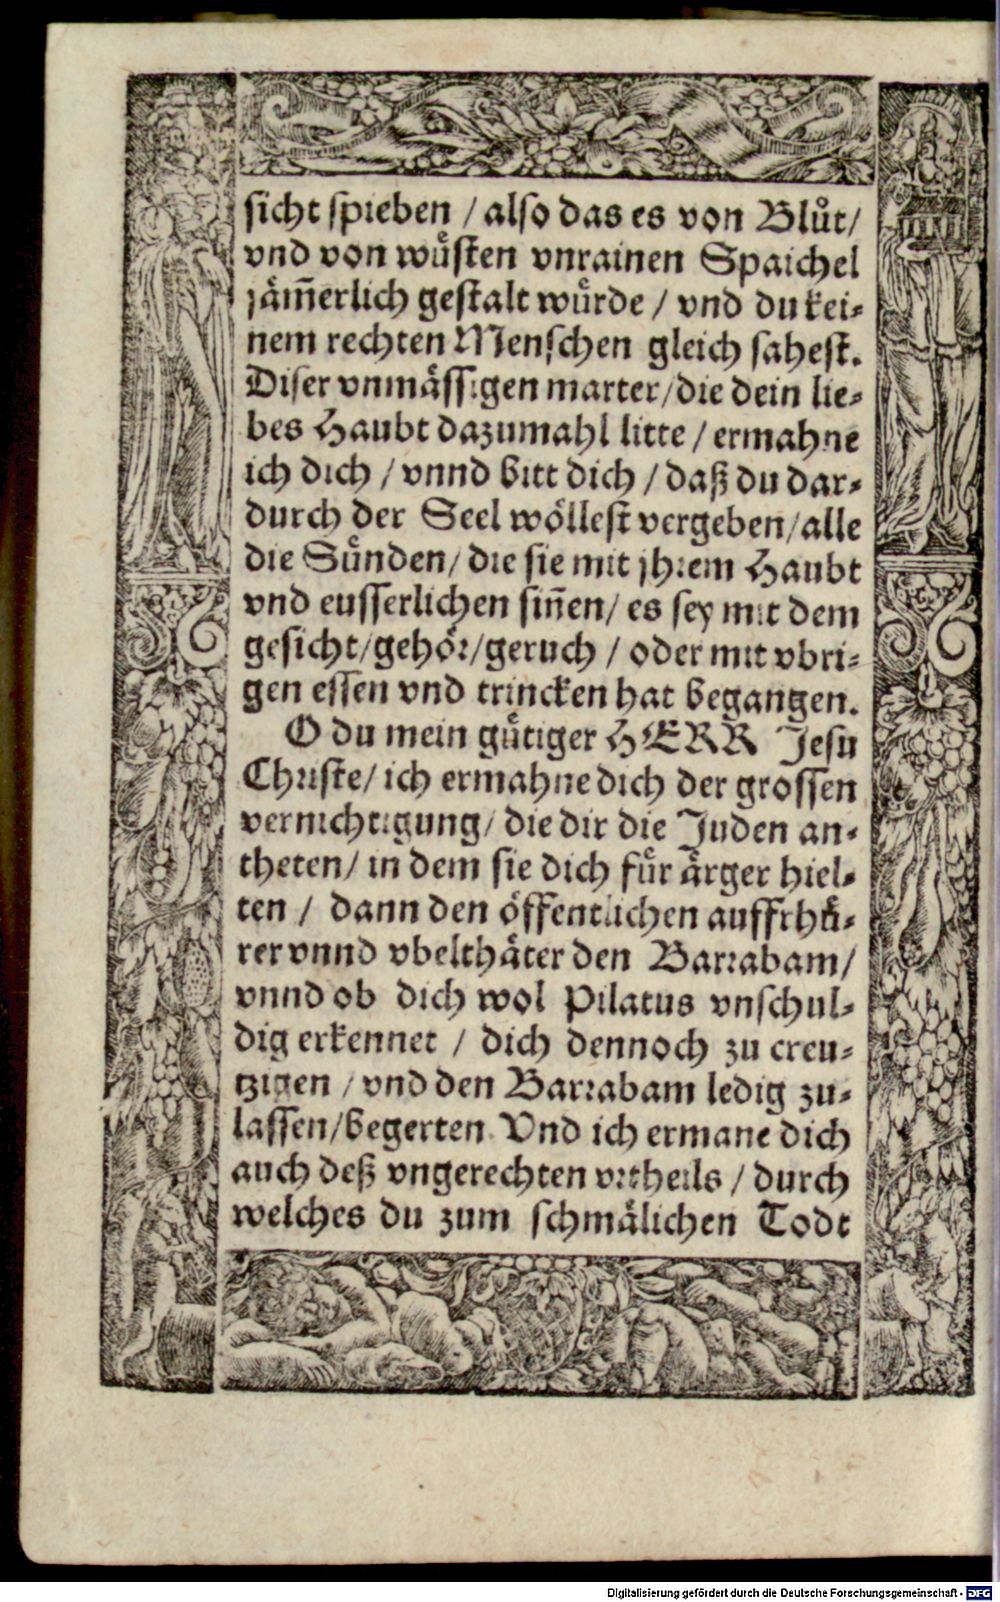 sicht spieben / also das es von Blůt/
vnd von wuͤsten vnrainen Spaichel
jaͤm̃erlich gestalt wuͤrde / vnd du kei-
nem rechten Menschen gleich sahest.
Diser vnmaͤssigen marter/die dein lie-
bes Haubt dazumahl litte / ermahne
ich dich / vnnd bitt dich / daß du dar-
durch der Seel woͤllest vergeben/alle
die Suͤnden/ die sie mit jhrem Haubt
vnd eusserlichen siñen/ es sey mit dem
gesicht/gehoͤr/geruch / oder mit vbri-
gen essen vnd trincken hat begangen.
O du mein guͤtiger HERR Jesu
Christe/ ich ermahne dich der grossen
vernichtigung/ die dir die Juden an-
theten/ in dem sie dich fuͤr aͤrger hiel-
ten / dann den oͤffentlichen auffrhuͤ-
rer vnnd vbelthaͤter den Barrabam/
vnnd ob dich wol Pilatus vnschul-
dig erkennet / dich dennoch zu creu-
tzigen / vnd den Barrabam ledig zu-
lassen/begerten. Vnd ich ermane dich
auch deß vngerechten vrtheils / durch
welches du zum schmaͤlichen Todt
Digitalisierung gefördert durch die Deutsche Forschungsgemeinschaft - DFG